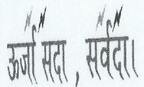 ऊर्जा सदा , सर्वदा।